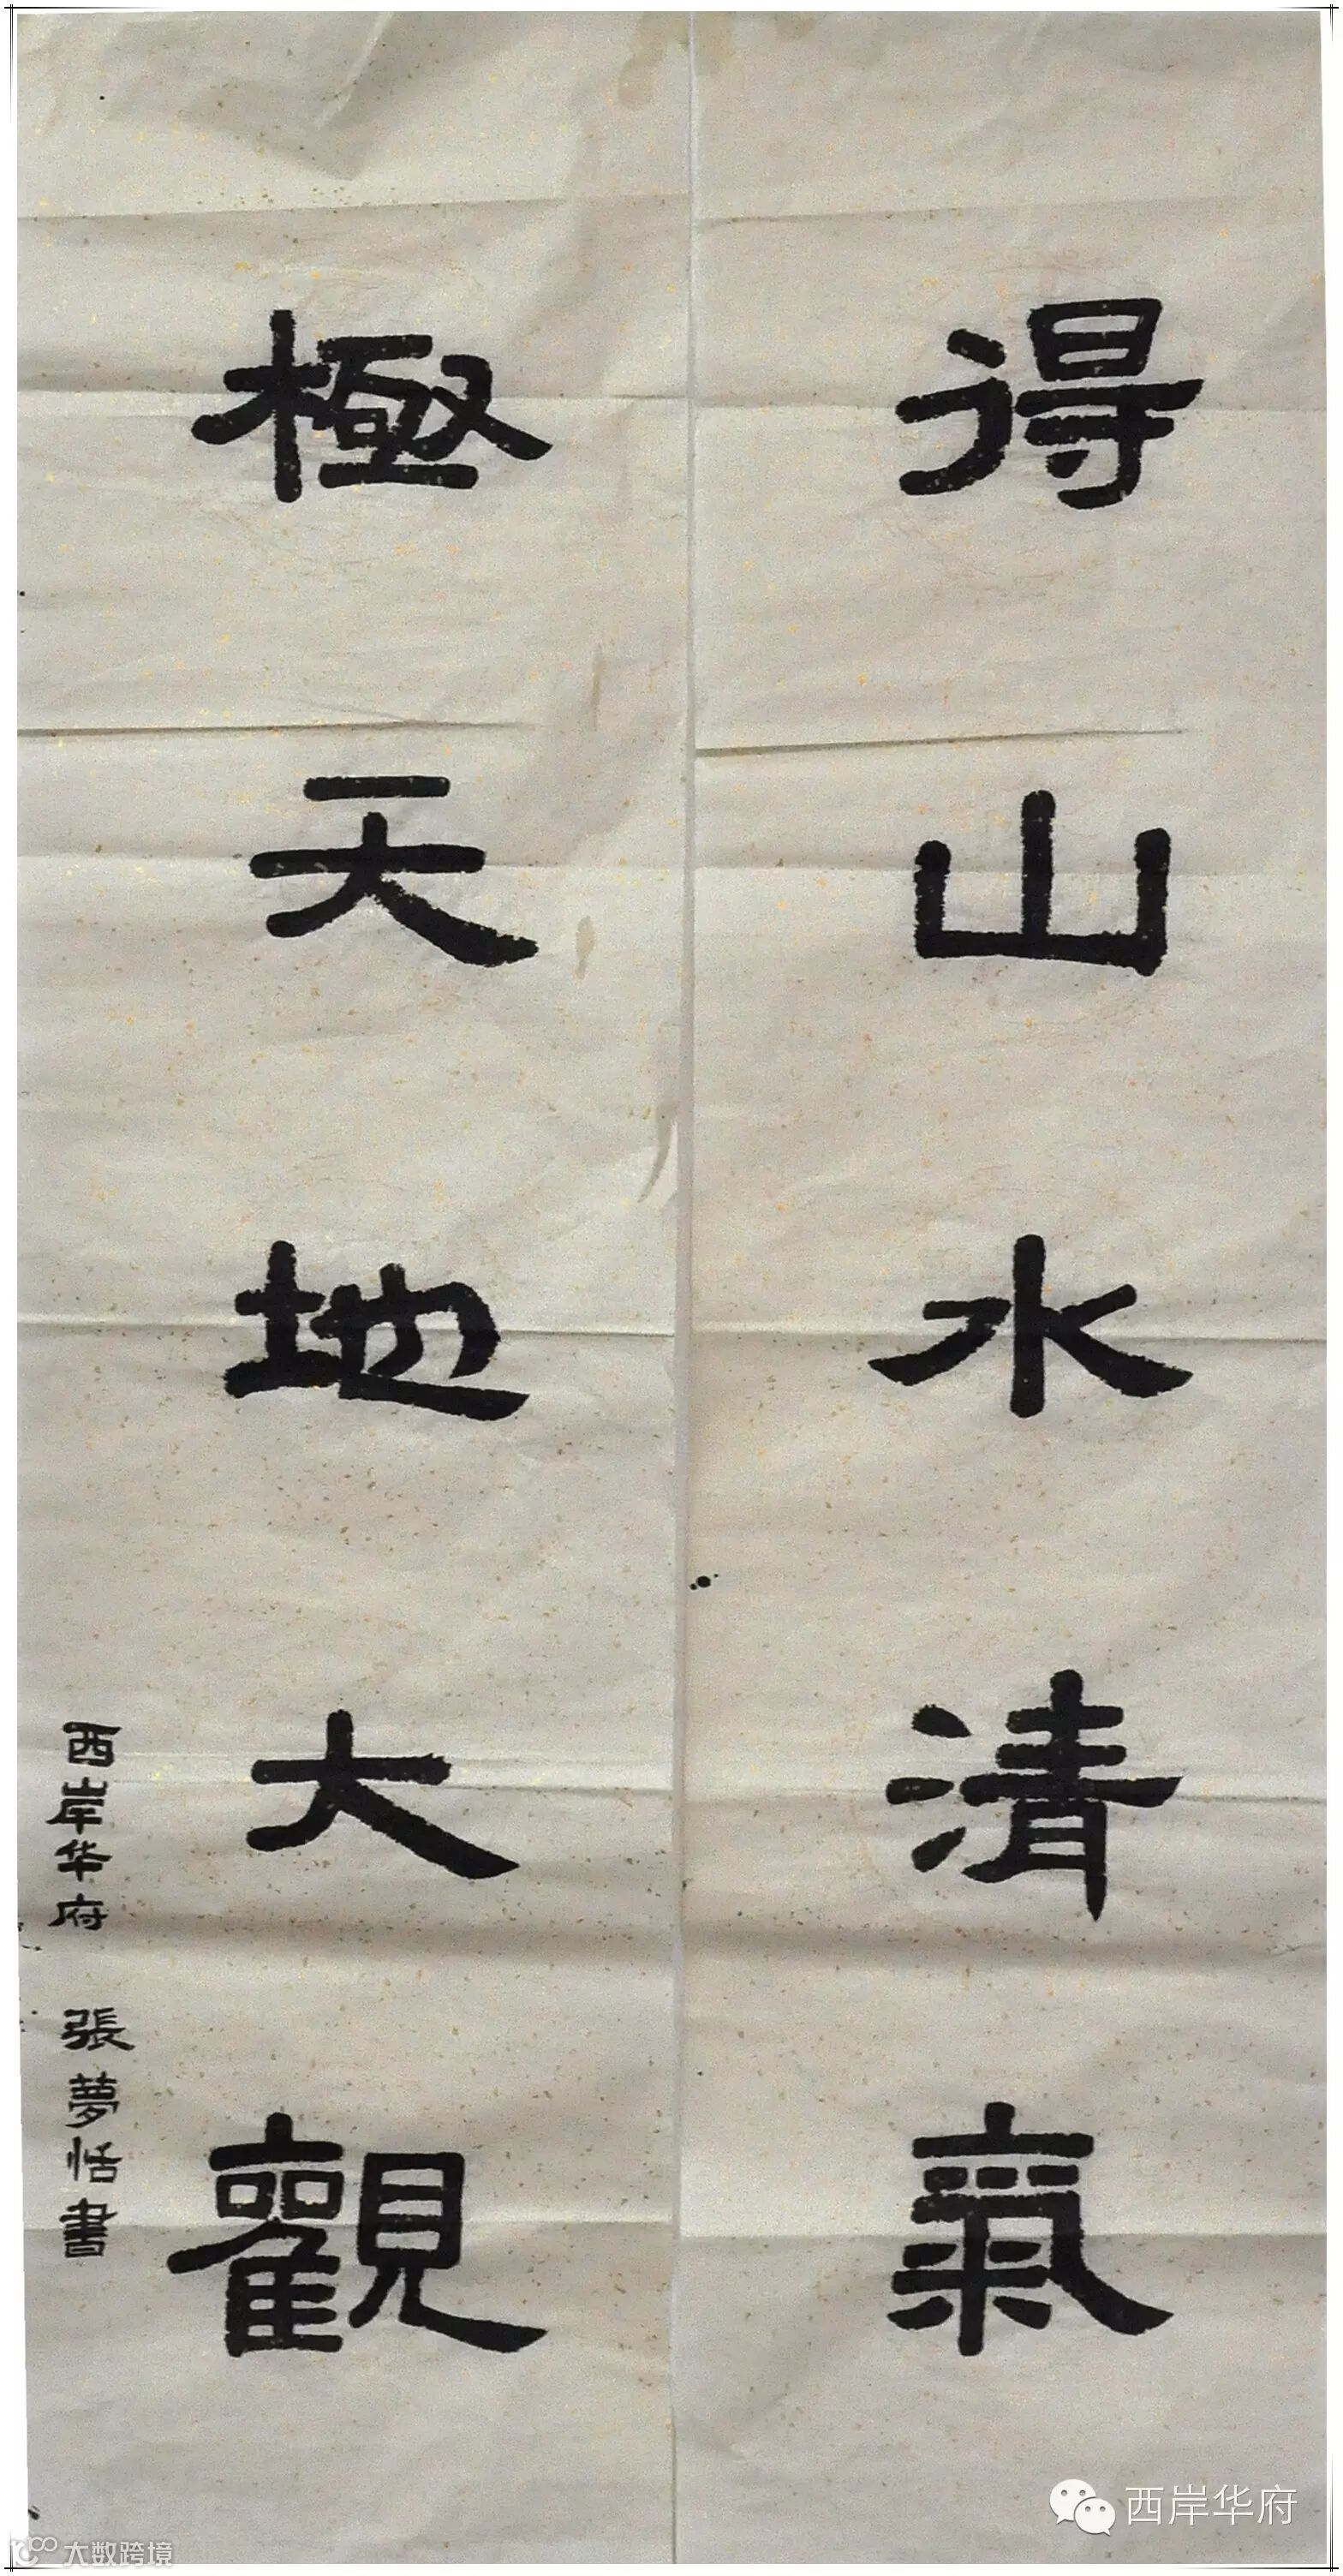 得山水清氣
極天地大觀
西岸华府 張夢恬書
西岸华府
大数跨境